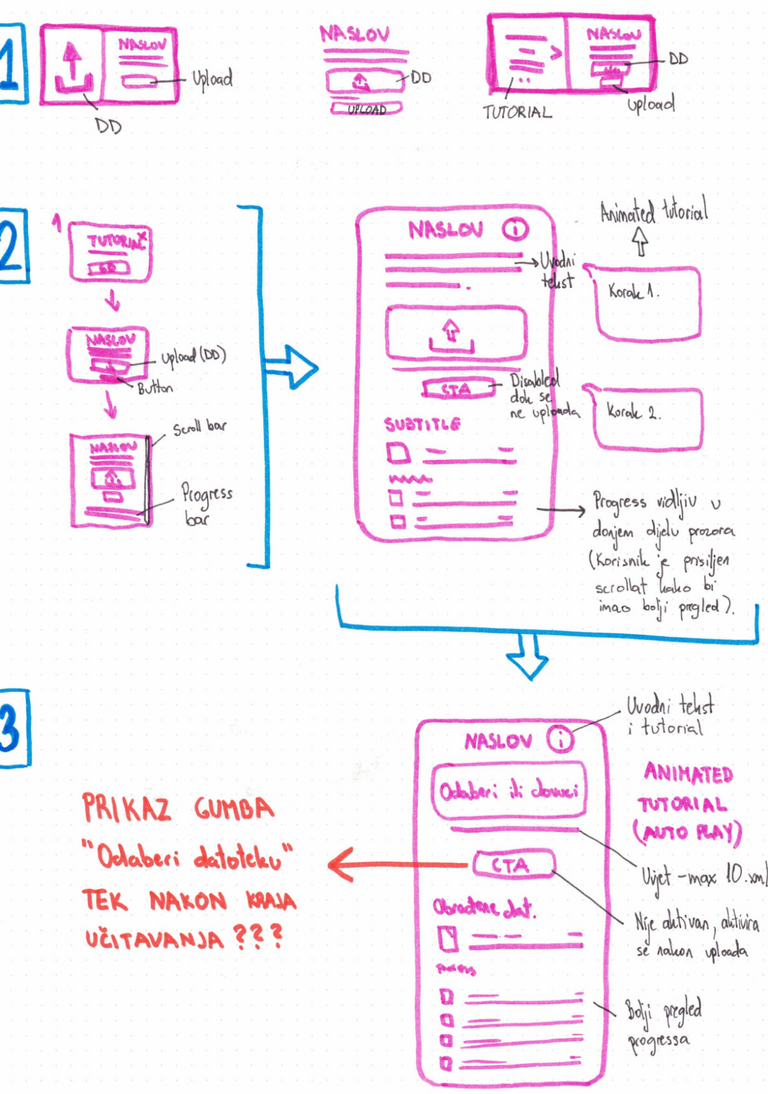 1
NASLOV
Upload
DD
NASLOV
DD
UPLOAD
NASLOV
DD
TUTORIAL
upload
2
1
TUTORIAL
X
NASLOV
upload (DD)
Button
Scroll bar
NASLOV
Progress
bar
NASLOV
i
Uvodni
tekst
CTA
Disabled
dok se
ne uploada
SUBTITLE
Animated tutorial
Korak 1.
Korak 2.
Progress vidljiv u
donjem dijelu prozora
(Korisnik je prisiljen
scrollat kako bi
imao bolji pregled).
3
NASLOV
i
Uvodni tekst
i tutorial
Odaberi ili dovuci
ANIMATED
TUTORIAL
(AUTO PLAY)
Uvjet - max 10.xml
CTA
Nije aktivan, aktivira
se nakon uploada
Obrađene dat.
Bolji pregled
progressa
PRIKAZ GUMBA
"Odaberi datoteku"
TEK NAKON KRAJA
UČITAVANJA ???